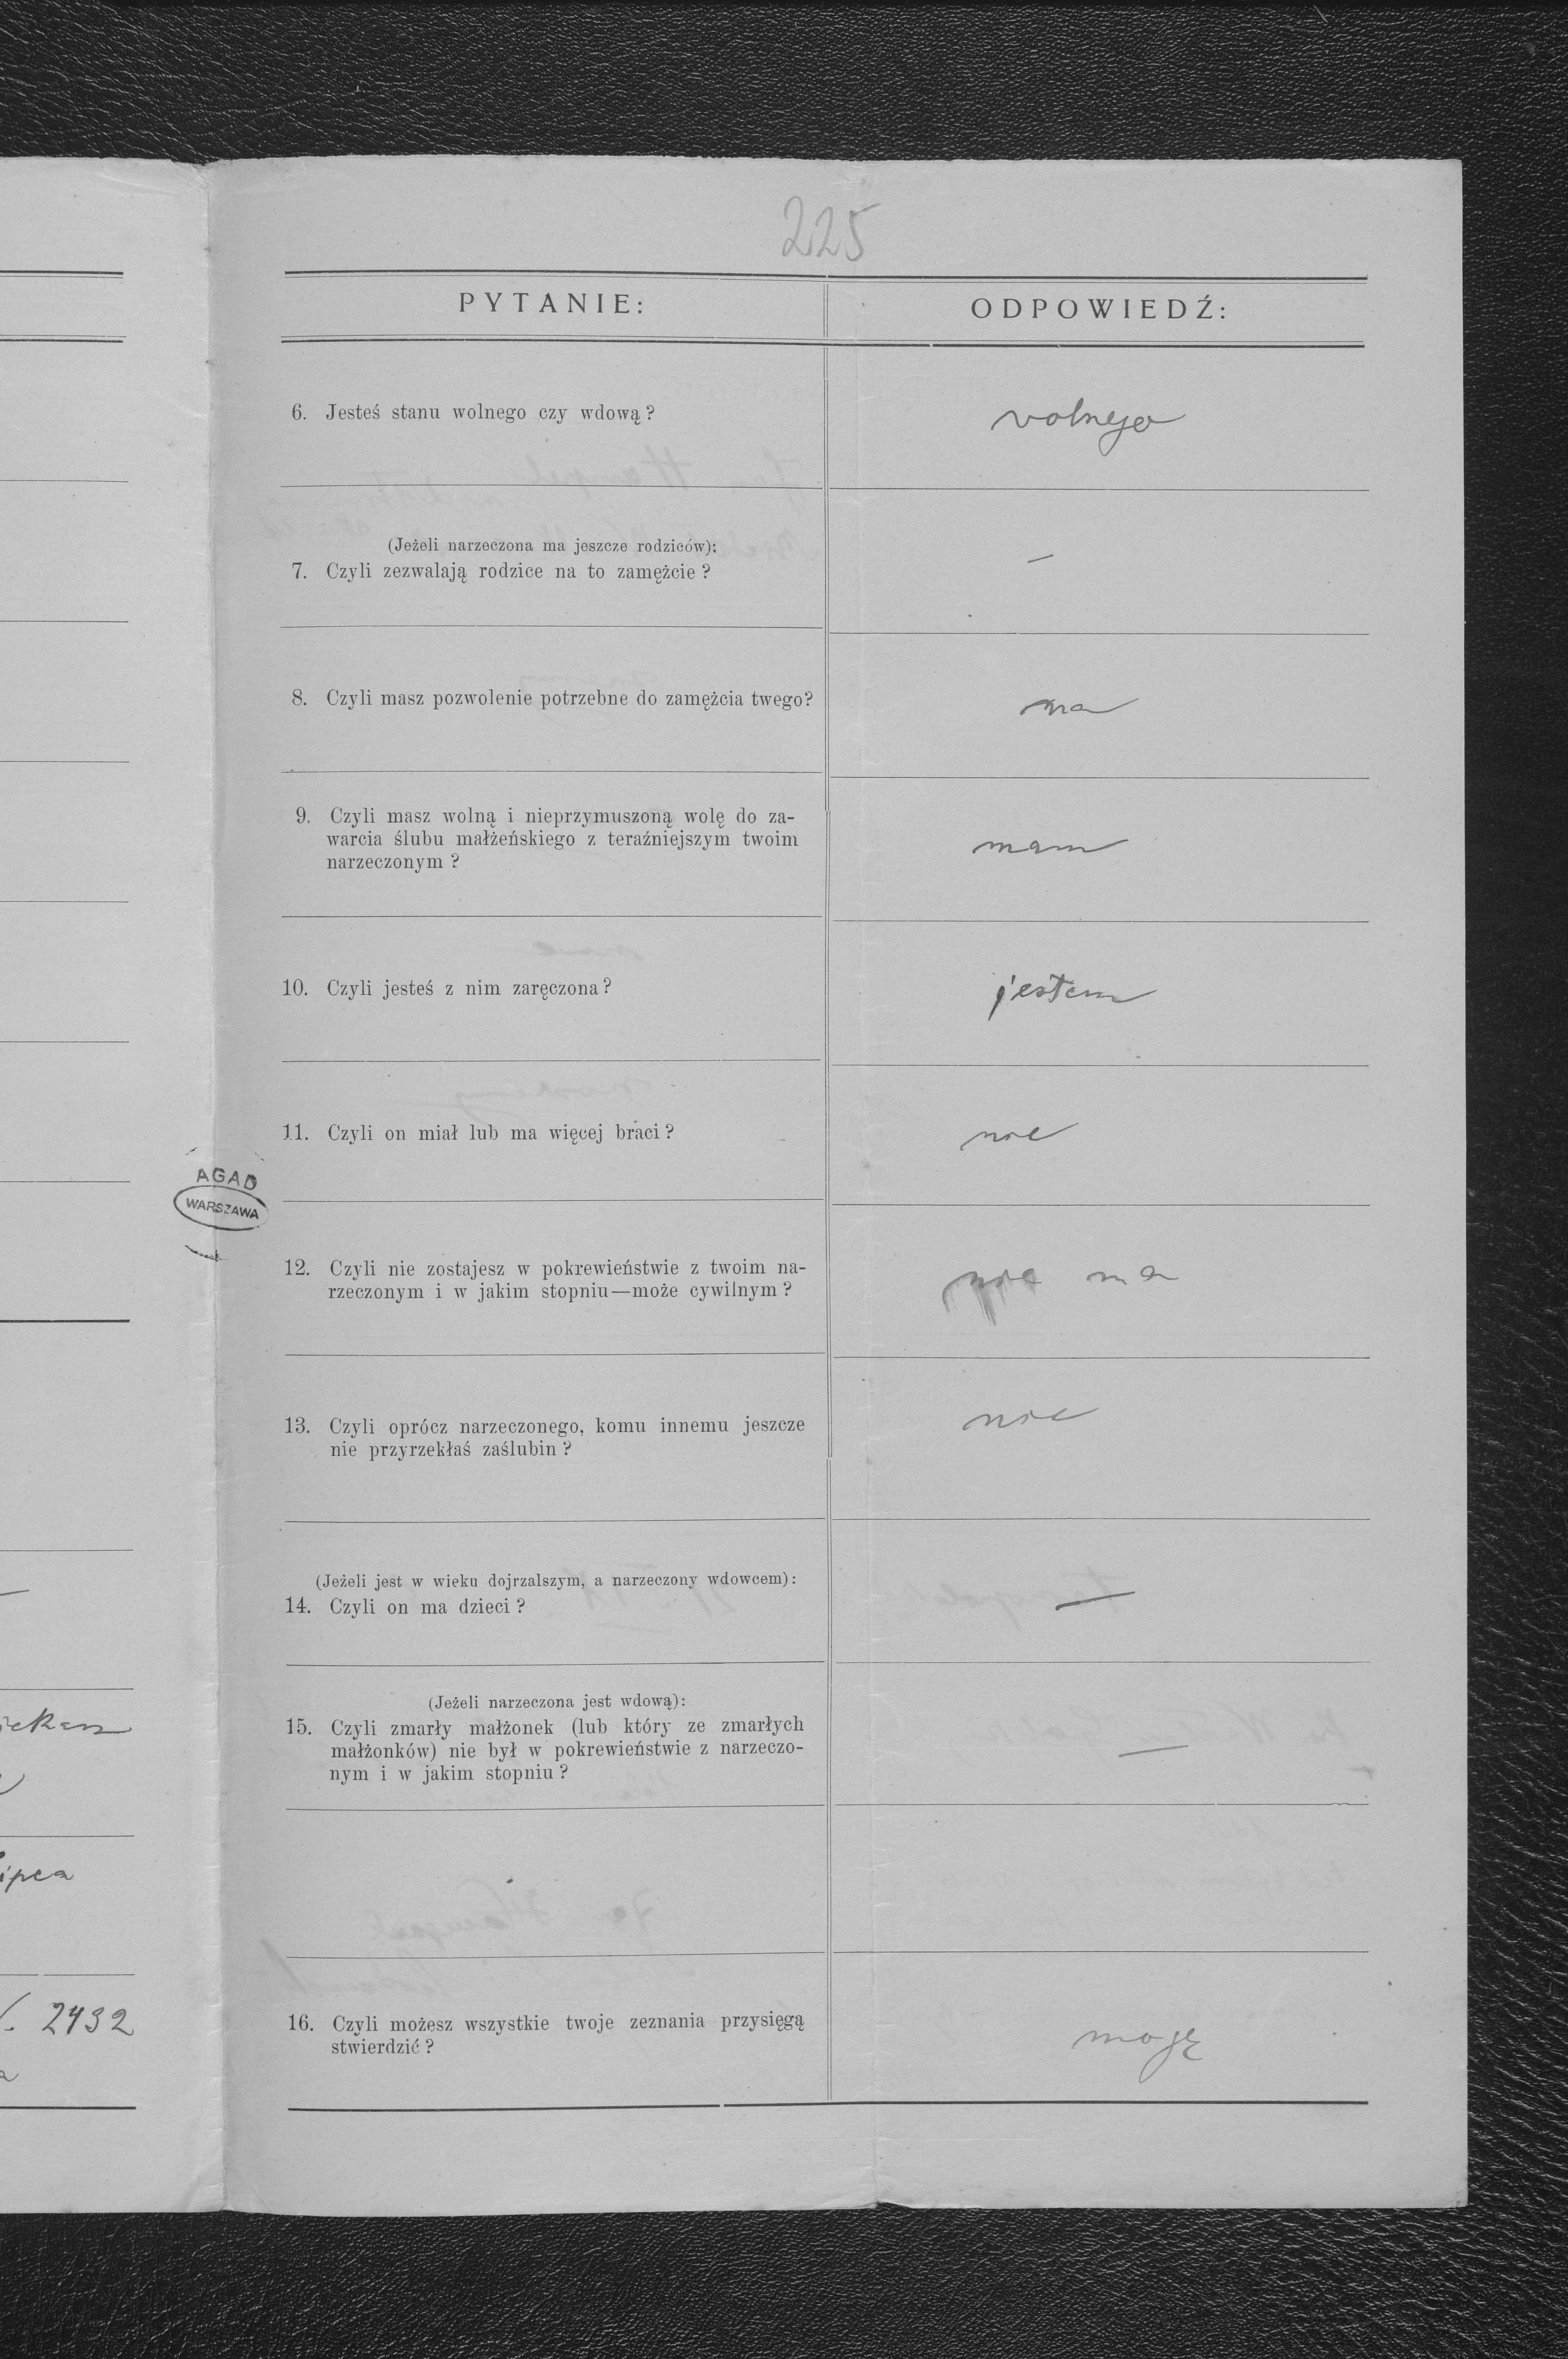 225
PYTANIE:
ODPOWIEDŹ:
6. Jesteś stanu wolnego czy wdową?
wolnego
(Jeżeli narzeczona ma jeszcze rodziców):
7. Czyli zezwalają rodzice na to zamężcie?
—
8. Czyli masz pozwolenie potrzebne do zamężcia twego?
ma
9. Czyli masz wolną i nieprzymuszoną wolę do za-
warcia ślubu małżeńskiego z teraźniejszym twoim
narzeczonym?
mam
10. Czyli jesteś z nim zaręczona?
jestem
11. Czyli on miał lub ma więcej braci?
nie
12. Czyli nie zostajesz w pokrewieństwie z twoim na-
rzeczonym i w jakim stopniu—może cywilnym?
nie ma
13. Czyli oprócz narzeczonego, komu innemu jeszcze
nie przyrzekłaś zaślubin?
nie
(Jeżeli jest w wieku dojrzalszym, a narzeczony wdowcem):
14. Czyli on ma dzieci?
—
(Jeżeli narzeczona jest wdową):
15. Czyli zmarły małżonek (lub który ze zmarłych
małżonków) nie był w pokrewieństwie z narzeczo-
nym i w jakim stopniu?
—
16. Czyli możesz wszystkie twoje zeznania przysięgą
stwierdzić?
mogę
AGAD
WARSZAWA
2432